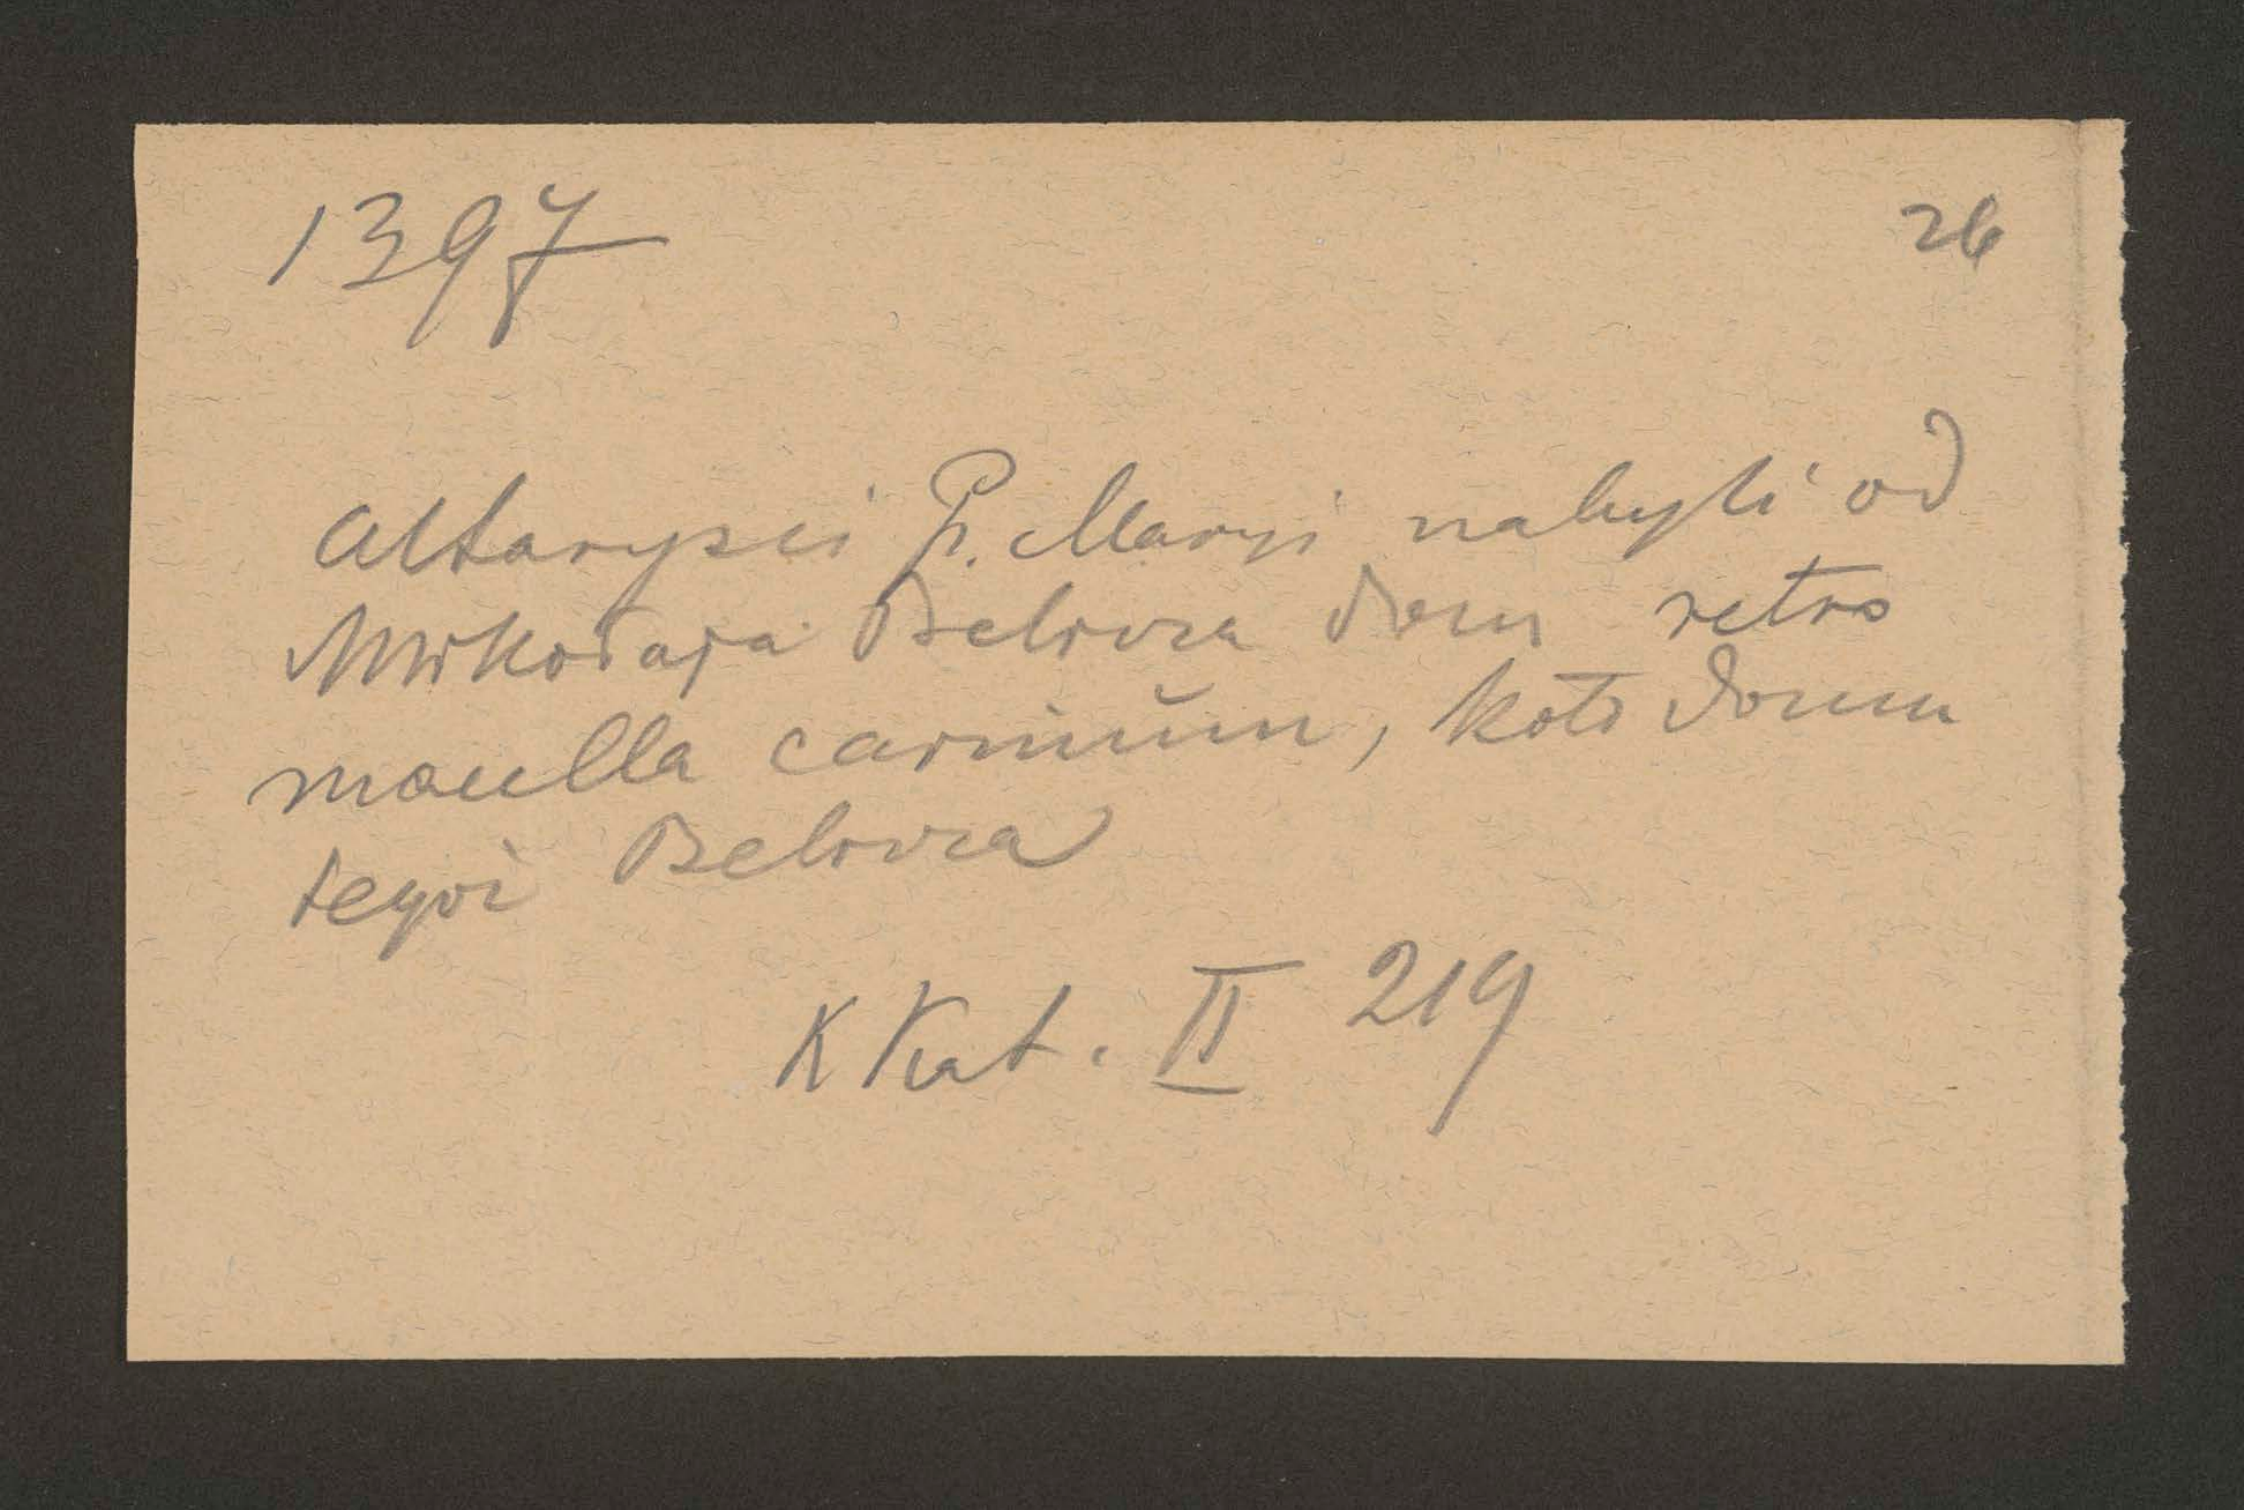 1397
26
Altaryści P. Maryi nabyli od
Mikołaja Belovza dom retro
macella carnium, koło domu
tegoż Belovza
K Kat. II 219